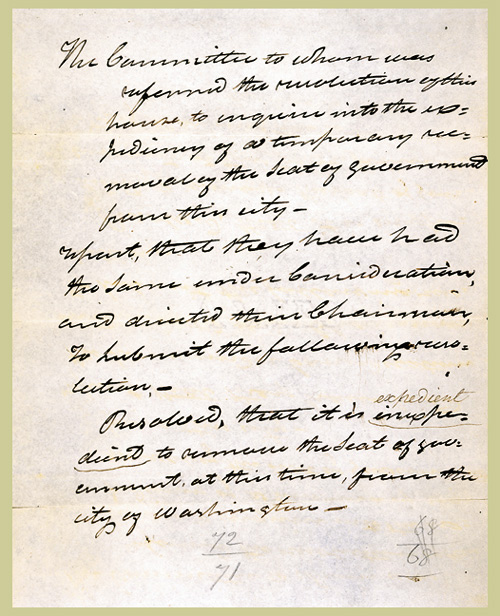 The Committee to whom was
referred the resolution of this
house, to enquire into the ex=
pediency of a temporary re=
moval of the Seat of government
from this city —
report, that they have had
the same under Consideration,
and directed their Chairman,
to submit the following reso-
lution, —
expedient
Resolved, that it is inexpe-
dient to remove the Seat of gov-
ernment, at this time, from the
city of Washington —
72
71
68
68